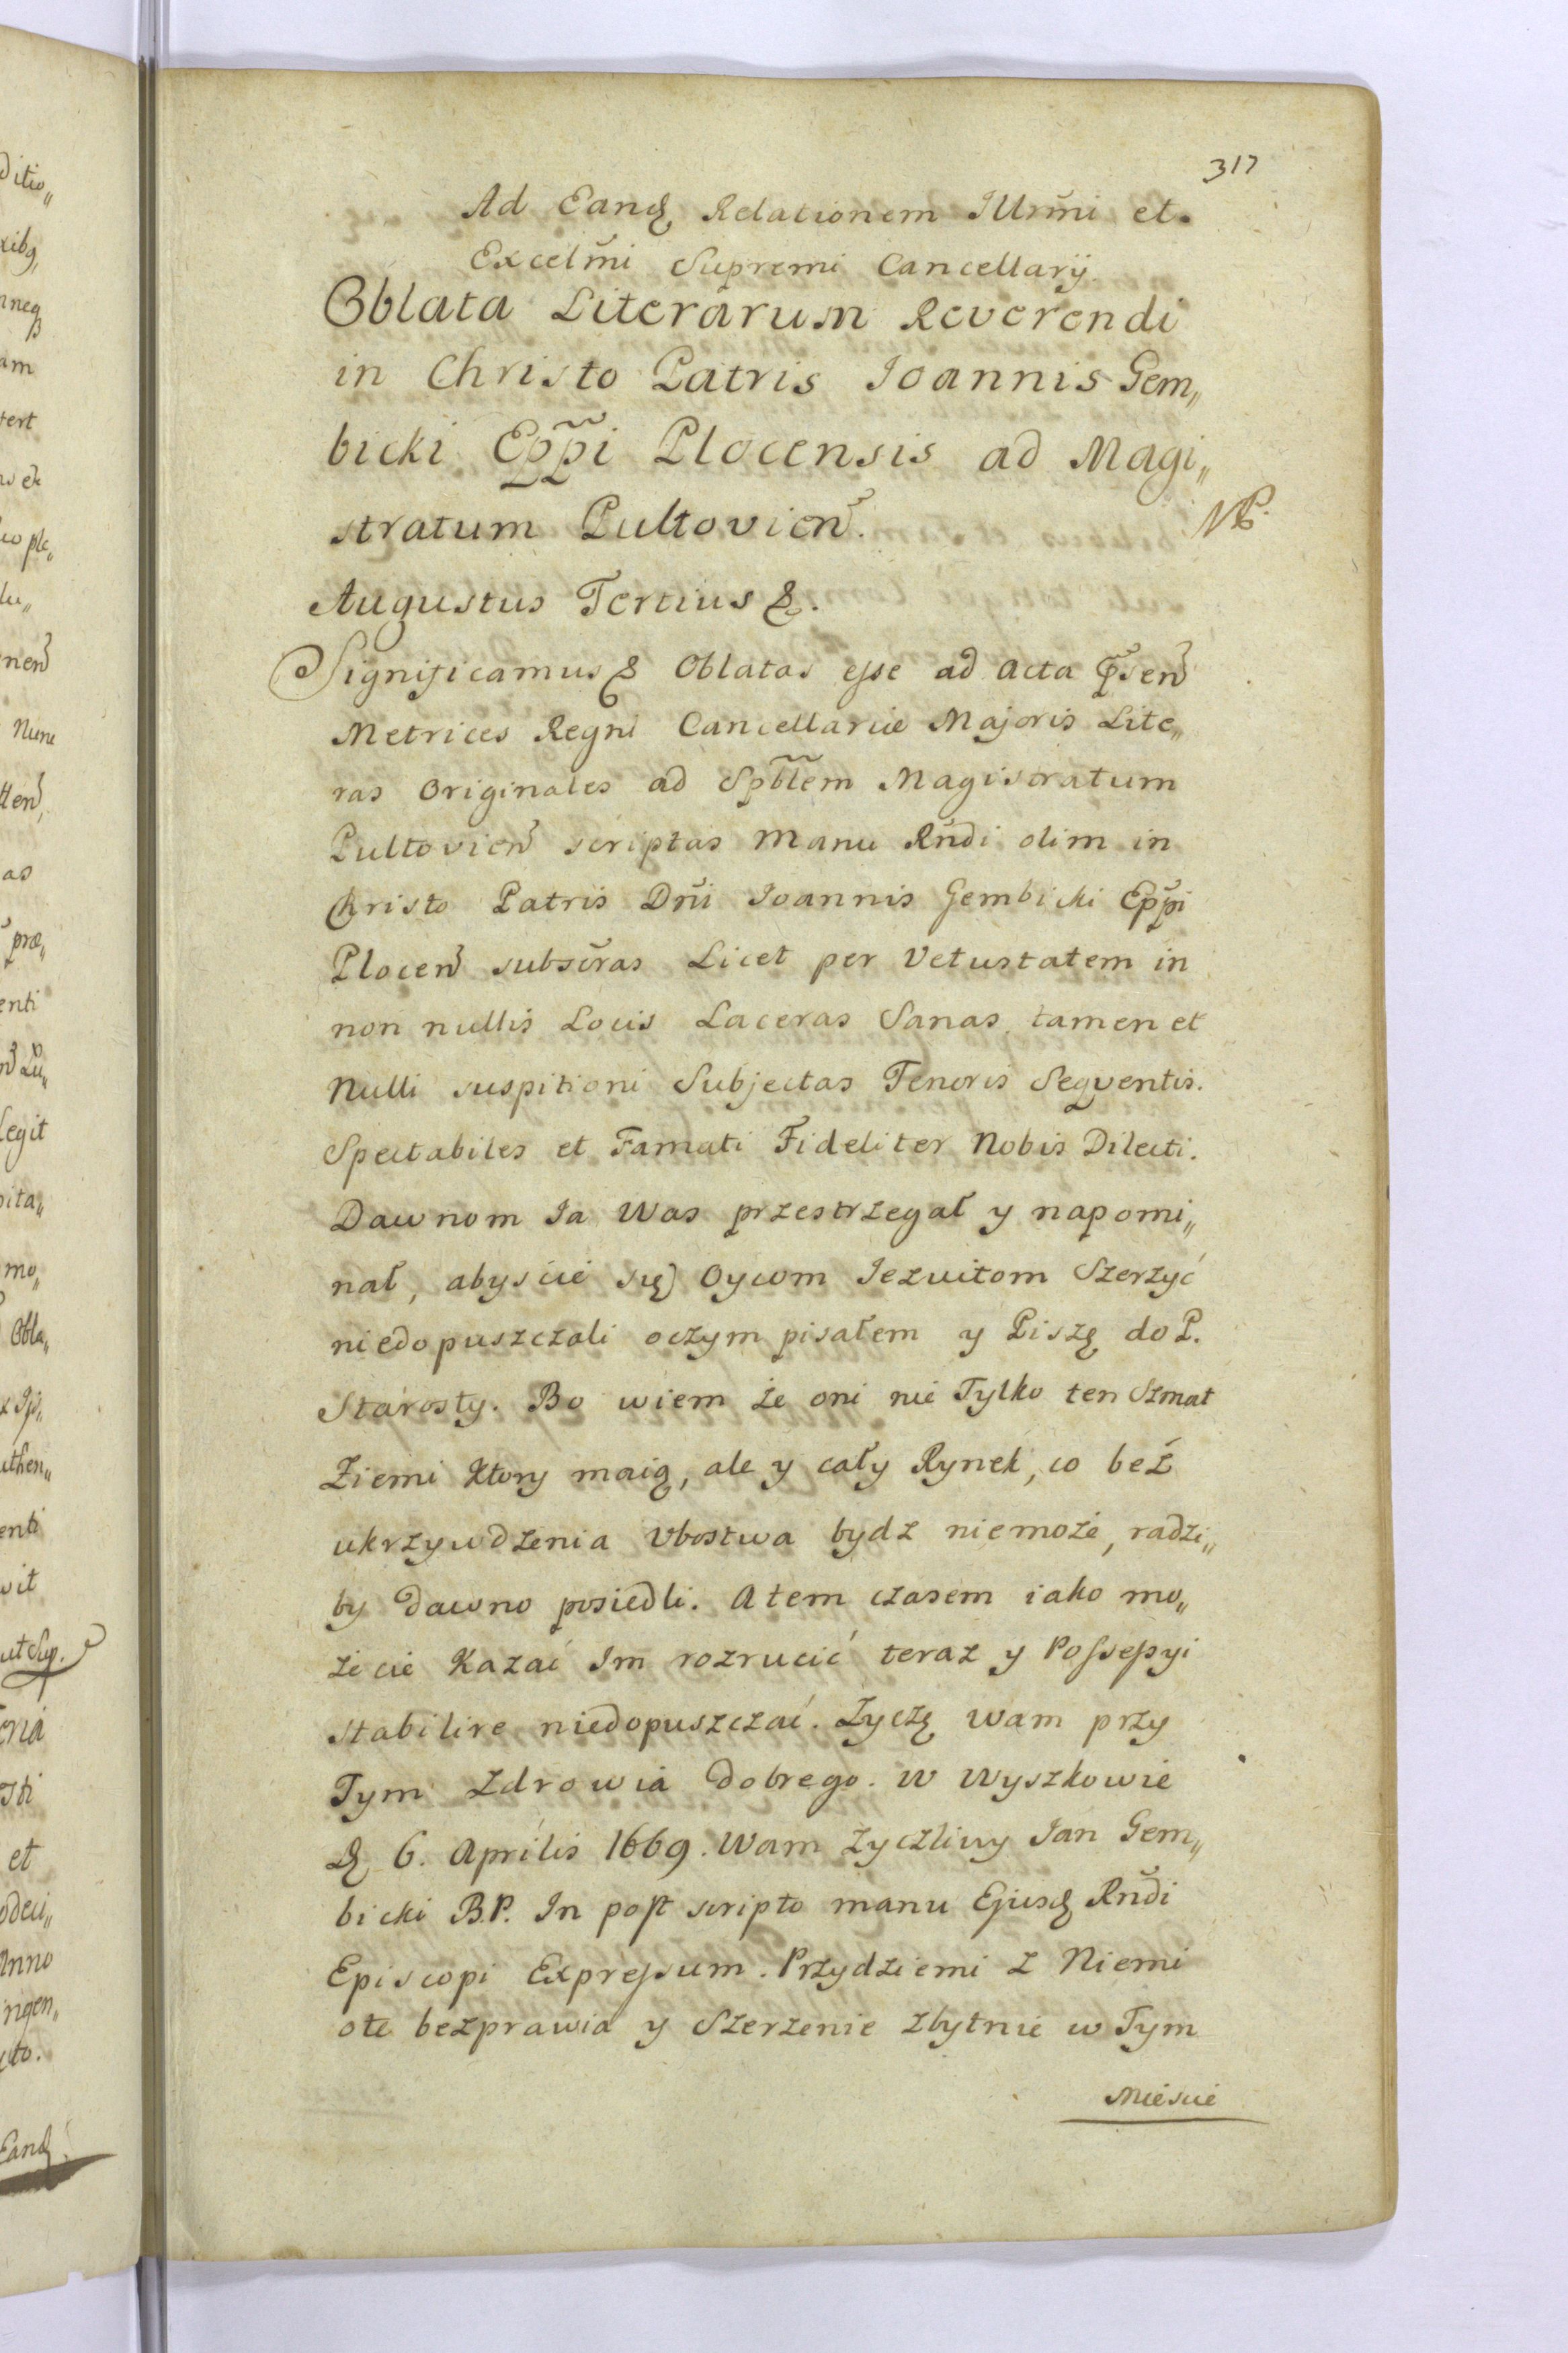 317
Ad Eand Relationem Illrmi et
Excelmi Supremi Cancellarÿ.
Oblata Literarum Reverendi
in Christo Patris Ioannis Gem„
bicki Eppi Plocensis ad Magi„
stratum Pultovien.
NB.
Augustus Tertius &.
Significamus & Oblatas esse ad Acta psen
Metrices Regni Cancellariæ Majoris Lite„
ras Originales ad Spblem Magistratum
Pultovien scriptas Manu Rndi olim in
Christo Patris Dni Ioannis Gembicki Eppi
Plocen subscras Licet per Vetustatem in
non nullis Locis Laceras Sanas tamen et
Nulli suspitioni Subjectas Tenoris Seqventis.
Spectabiles et Famati Fideliter Nobis Dilecti.
Dawnom Ia Was przestrzegał y napomi„
nał, abyscie się Oycom Iezuitom Szerzyć
niedopuszczali oczym pisałem y Piszę do P.
Starosty. Bo wiem że oni nie Tylko ten Szmat
Ziemi Ktory maią, ale y cały Rynek, co beź
ukrzywdzenia Vbostwa bydz niemoże, radzi„
by dawno posiedli. Atem czasem iako mo„
żecie Kazać Im rozrucić teraz y Possessyi
stabilire niedopuszczać. Zyczę wam przy
Tym zdrowia dobrego. W Wyszkowie
D 6. Aprilis 1669. Wam Zyczliwy Ian Gem„
bicki B.P. In post scripto manu Ejusd Rndi
Episcopi Expressum. Przydziemi z Niemi
ote bezprawia y Szerzenie zbytnie w Tym
Miescie
ditio„
xibq,
nneq
am
tert
ple„
lu„
nen
Nunc
tten,
as
præ„
enti
Legit
pita„
mo„
Obla„
uthen„
enti
vit
ut Sup.
et
Anno
ingen„
Eand